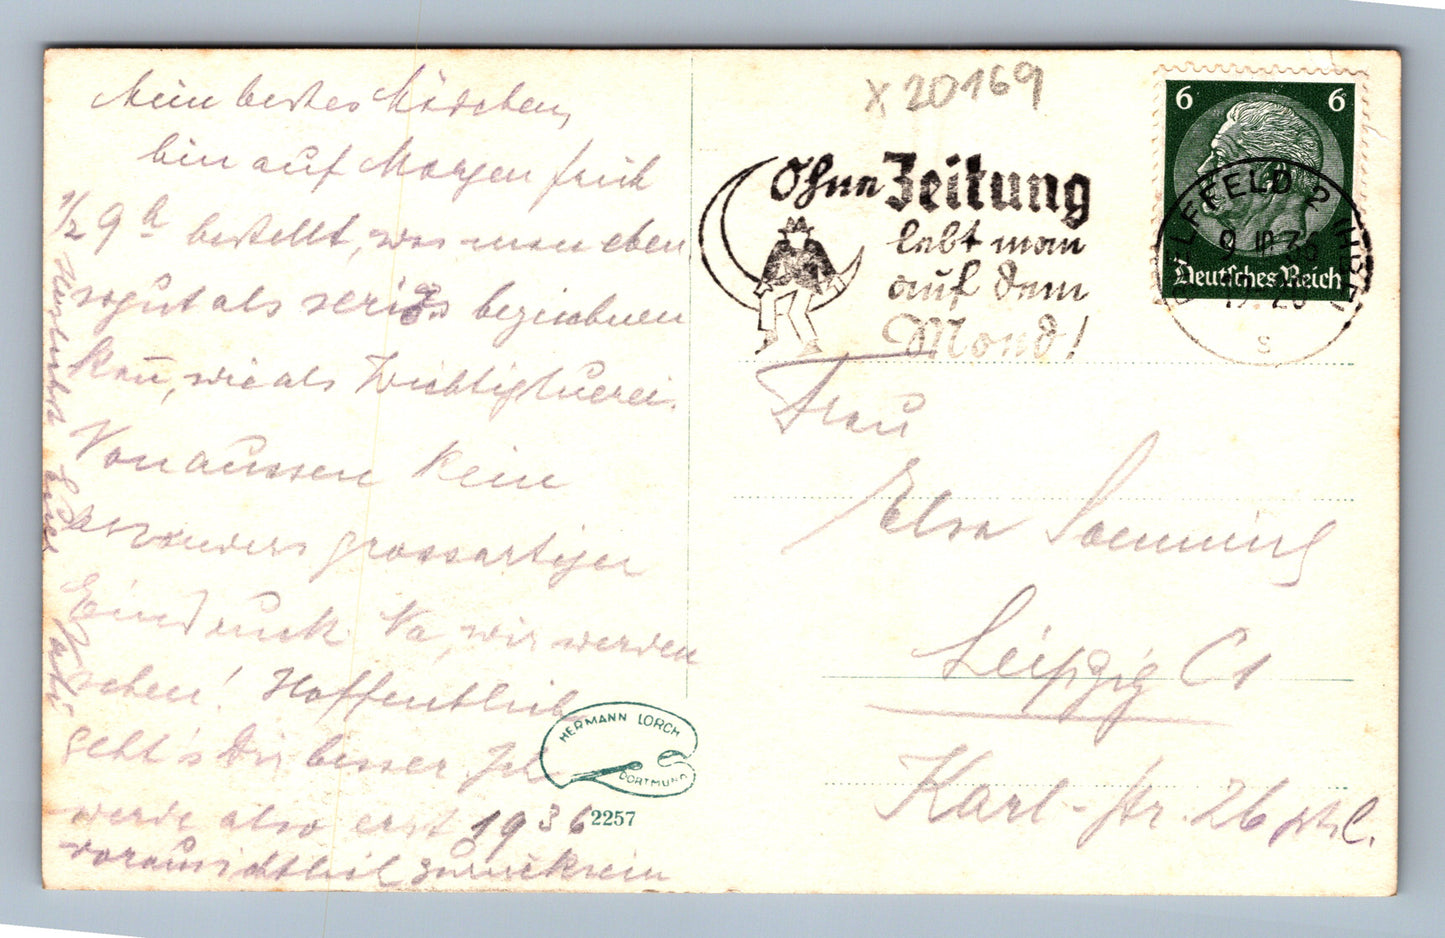 Mein bestes Mädchen,
bin auf Morgen früh
1/2 9 h bestellt, was man eben
sogut als seriös bezeichnen
kaū, wie als Wichtigtuerei.
Von aussen kein
besonders grossartiger
Eindruck. Na, wir werden
sehen! Hoffentlich
geht's Dir besser. Ich
werde also erst 1936
voraussichtlich zurück sein
Herzlichst
HERMANN LORCH
DORTMUND
2257
X 20169
Ohne Zeitung
lebt man
auf dem
Mond!
6 6
Deutsches Reich
ELFFELD 2
S
Frau
Elsa
Leipzig C1
Karl-Str. 26 ptl.